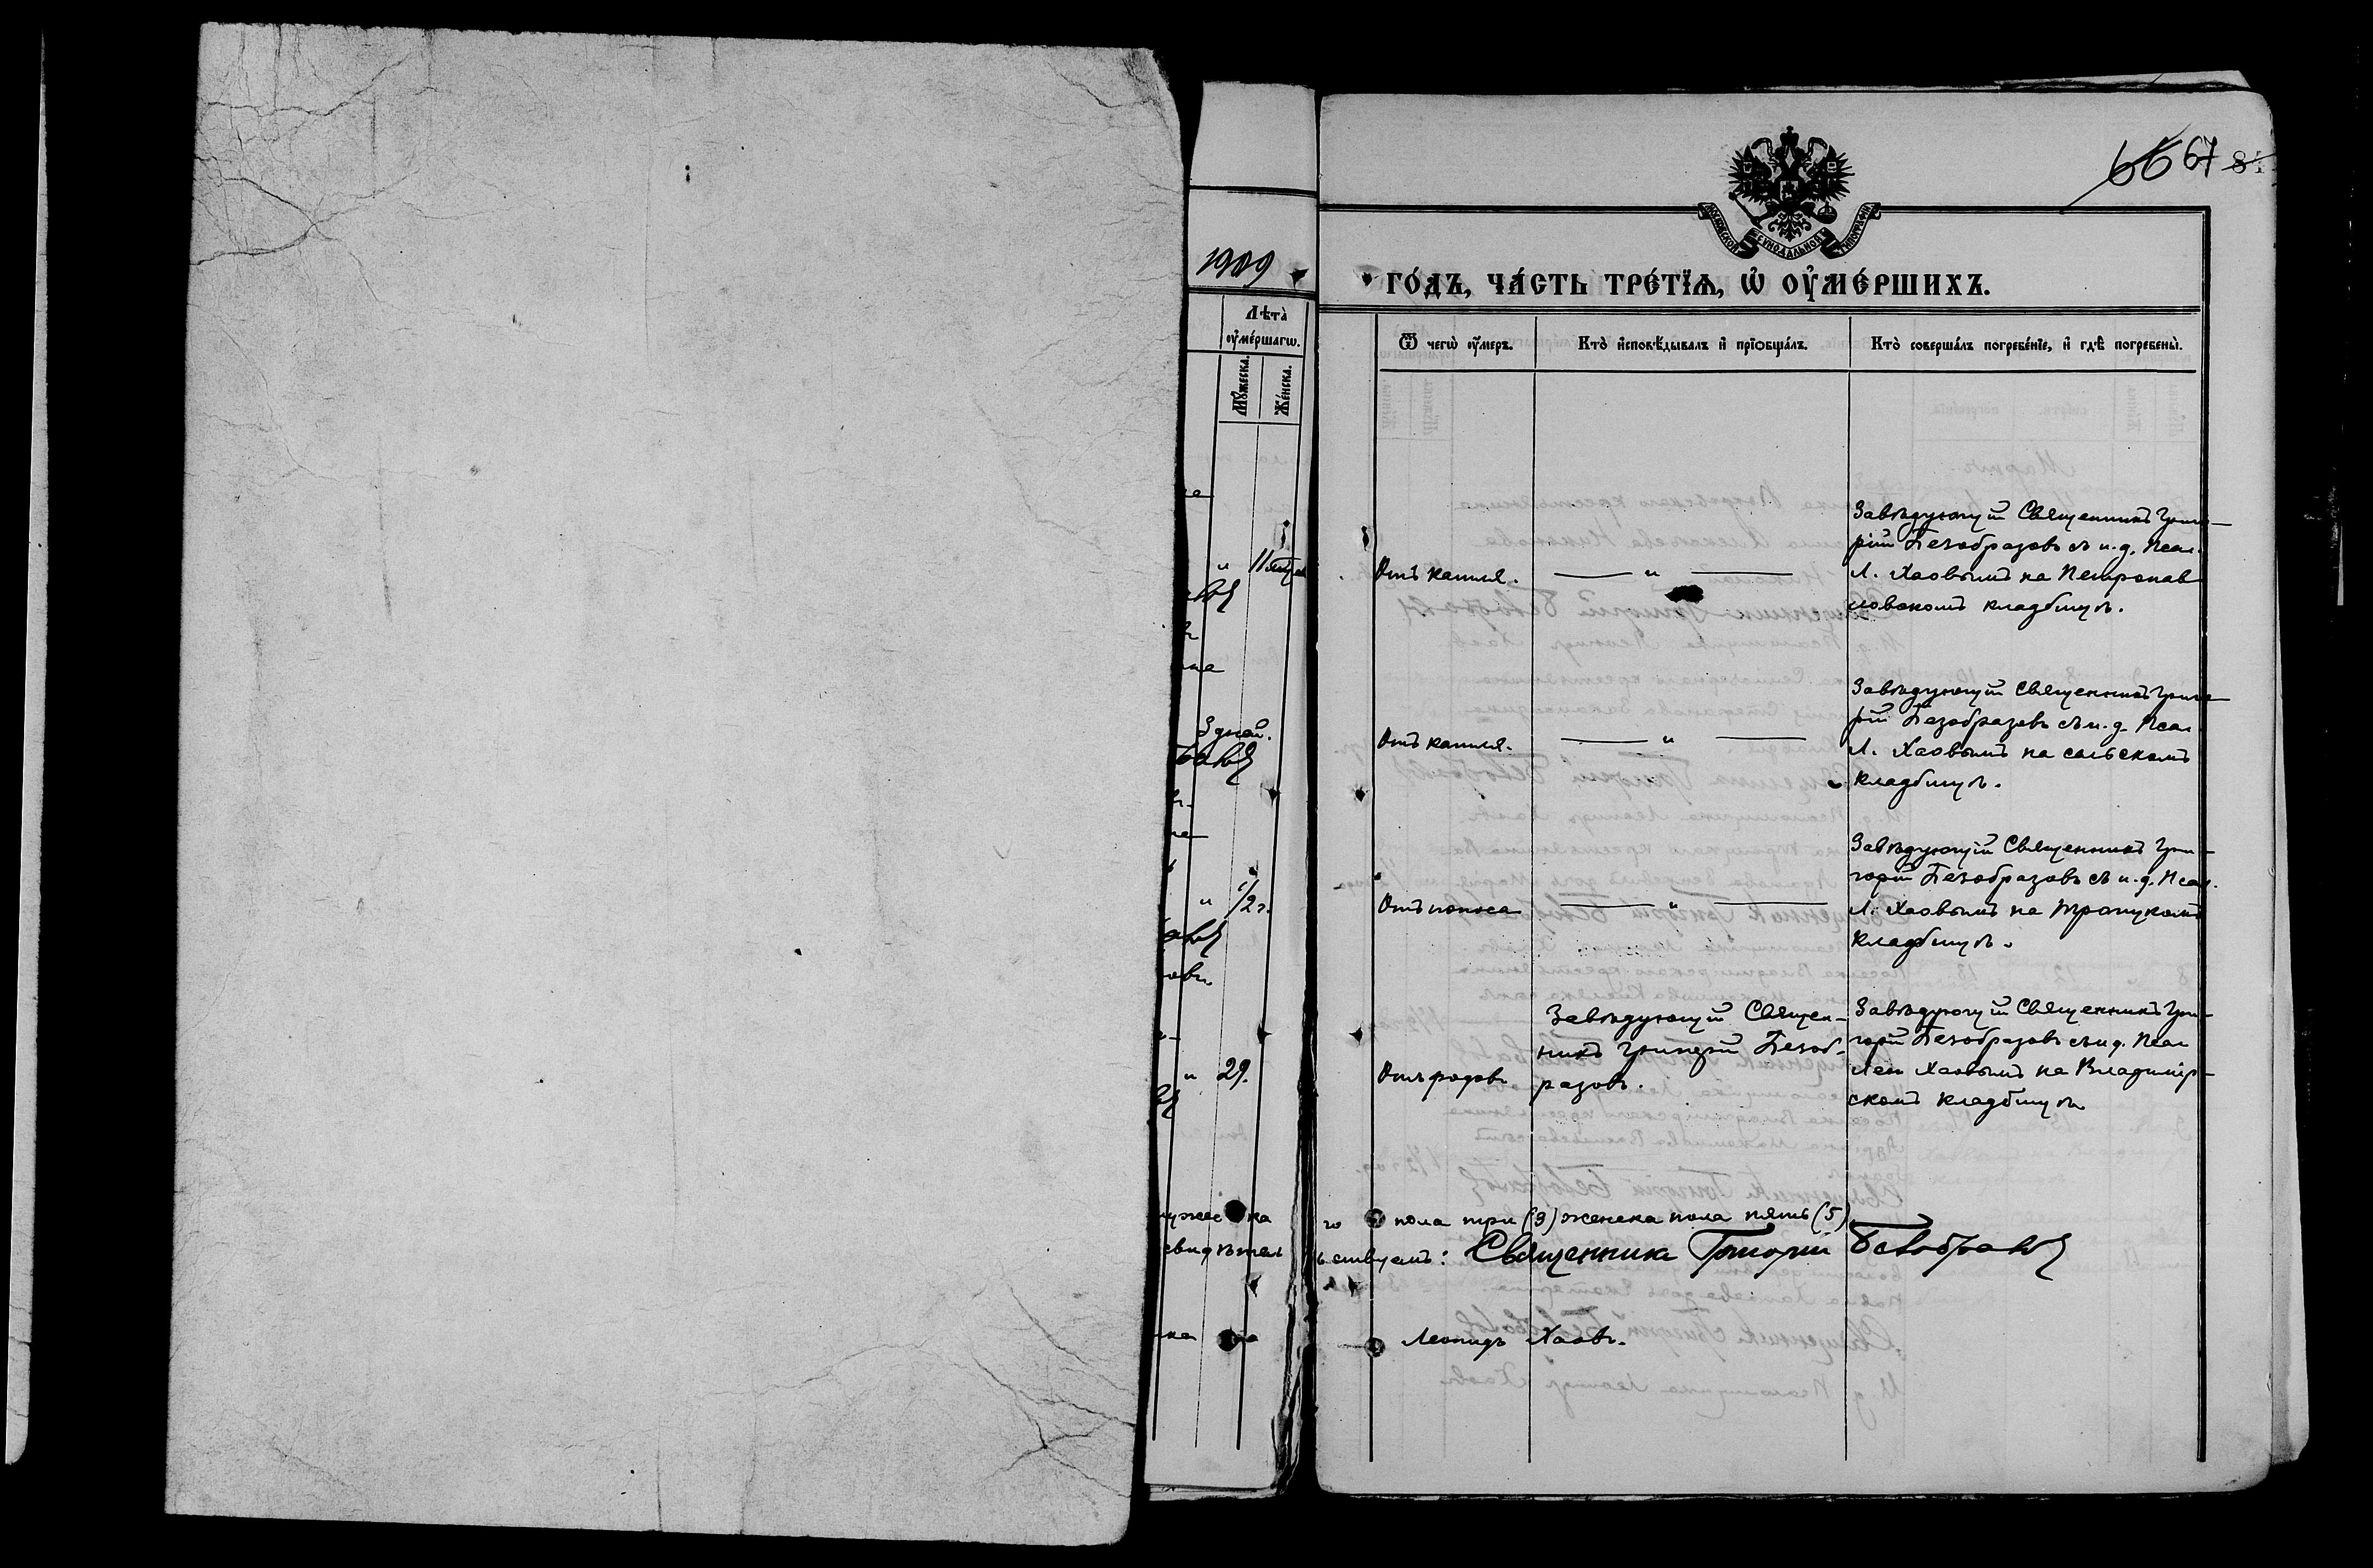 66 67
МОСКОВСКОЙ СѴНОДАЛЬНОЙ ТИПОГРАФІИ
1909
ГО́ДЪ, ЧА́СТЬ ТРЕ́ТЇѦ, Ѡ҆ ОУ҆МЕ́РШИХЪ.
Лѣта̀ оу҆ме́ршагѡ.
Мꙋ́жеска.
Же́нска.
Ѿ чегѡ̀ оу҆́меръ.
Кто̀ и҆сповѣ́дывалъ и҆ прїѡбща́лъ.
Кто̀ соверша́лъ погребе́нїе, и҆ гдѣ̀ погребены̀.
"
Отъ кашля.
— " —
Завѣдующій Священникъ Григо-
рій Безобразовъ съ и. д. Псал.
Л. Хаовымъ на Петропав
ловскомъ кладбищѣ.
3 дней.
Отъ кашля.
— " —
Завѣдующій Священникъ Григо-
рій Безобразовъ съ и. д. Псал.
Л. Хаовымъ на сельскомъ
кладбищѣ.
" 1/2 г.
Отъ поноса
— " —
Завѣдующій Священникъ Гри-
горій Безобразовъ съ и. д. Псал.
Л. Хаовымъ на Троицкомъ
кладбищѣ.
" 29.
Отъ родовъ
Завѣдующій Священ-
никъ Григорій Безоб-
разовъ.
Завѣдующій Священникъ Гри-
горій Безобразовъ съ и д. Псал
Леон Хаовымъ на Владимір-
скомъ кладбищѣ
го пола три (3) женска пола пять (5)
свидѣтельствуетъ: Священникъ Григорій Безобразовъ
Леонидъ Хаовъ.